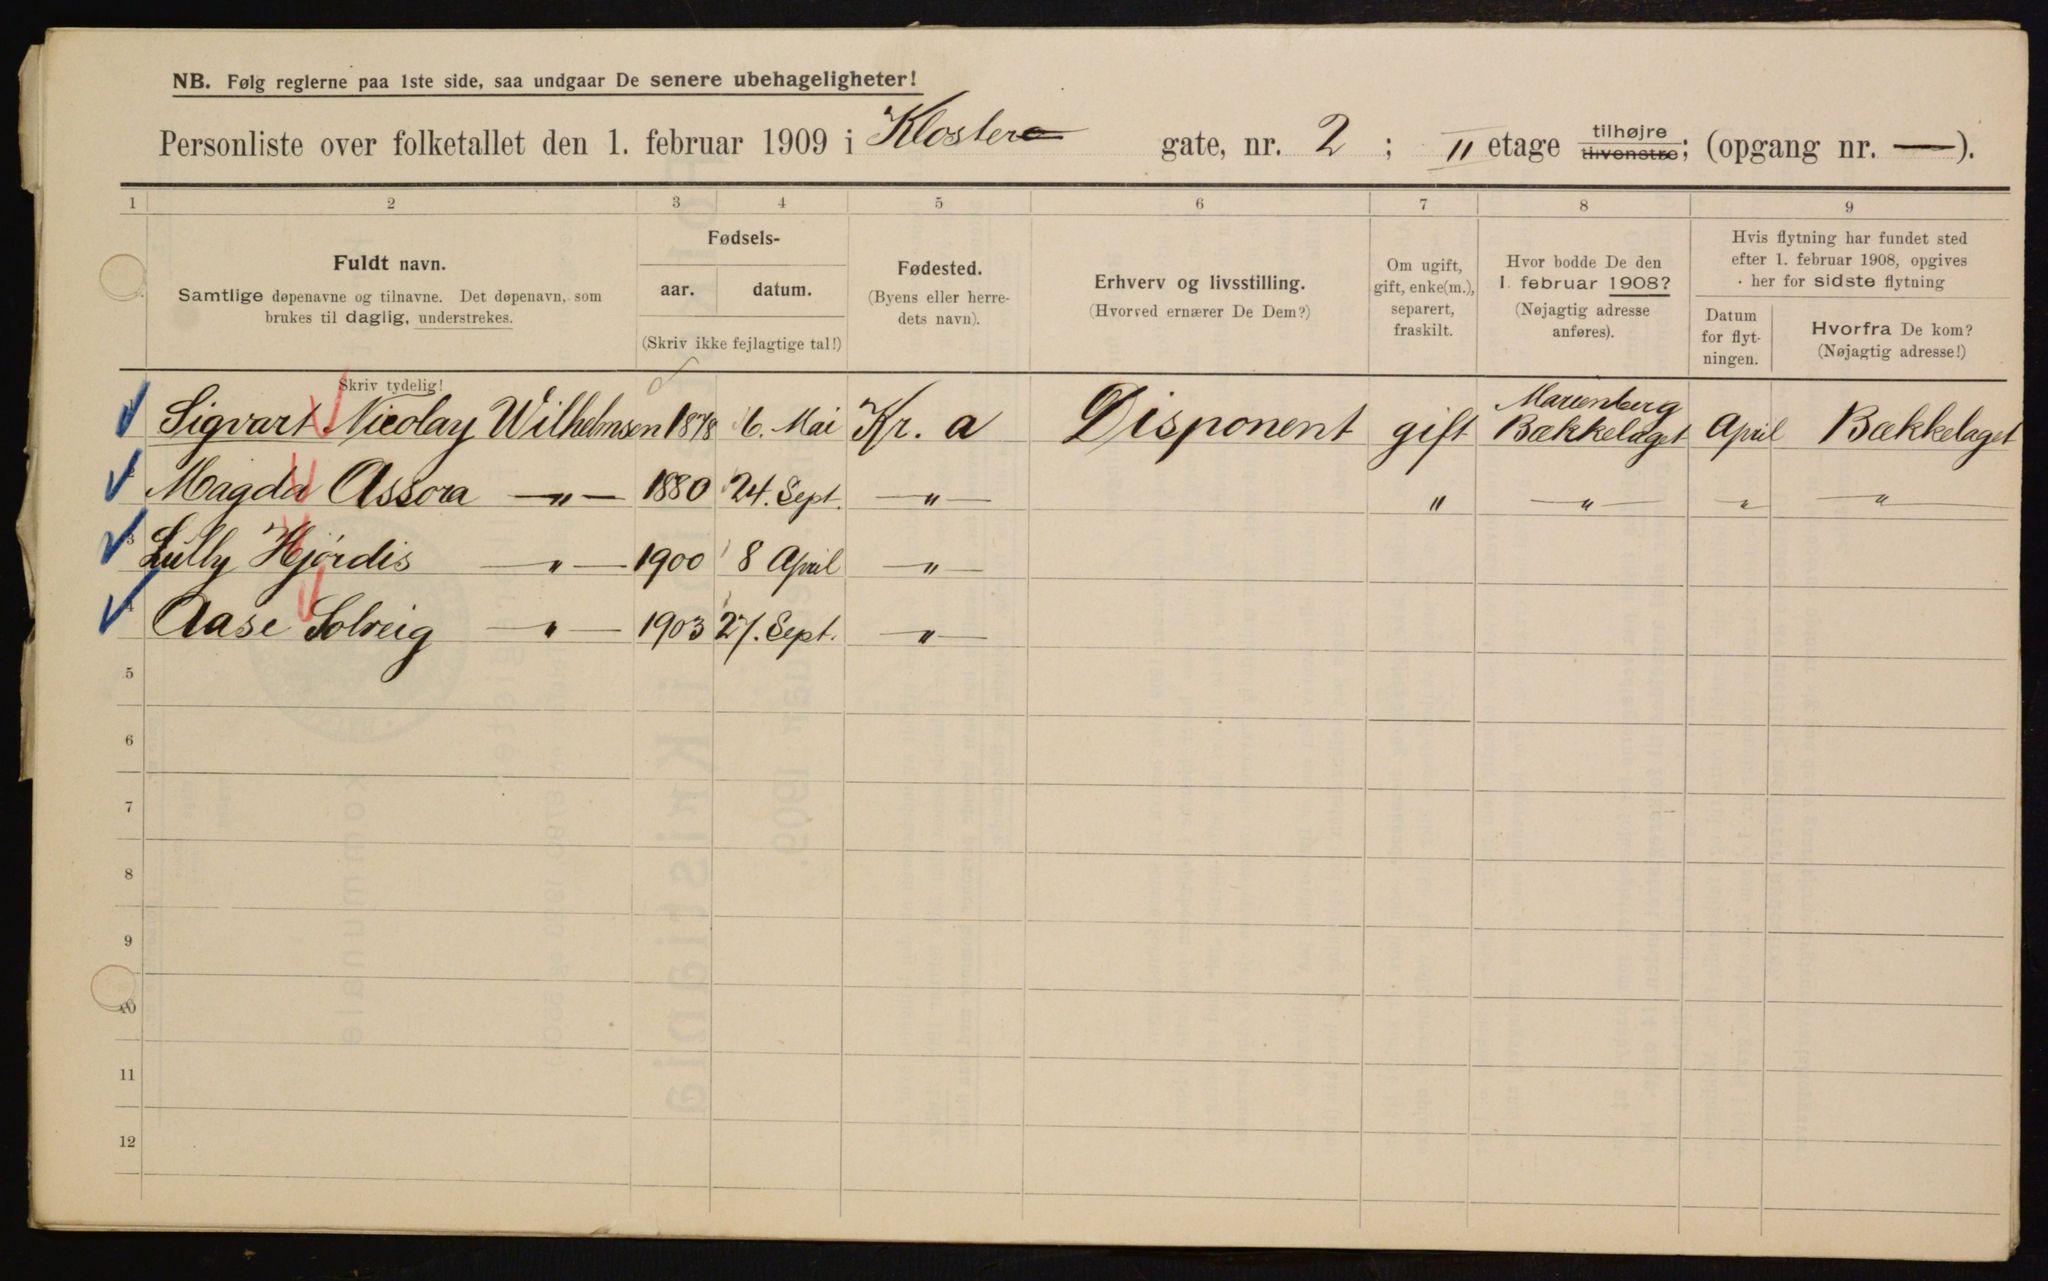 NB. Følg reglerne paa 1ste side, saa undgaar De senere ubehageligheter!
Personliste over folketallet den 1. februar 1909 i Kloster gate, nr. 2 ; II etage tilhøjre tilvenstre; (opgang nr. —).
1 2 3 4 5 6 7 8 9
Fuldt navn.
Samtlige døpenavne og tilnavne. Det døpenavn, som
brukes til daglig, understrekes.
Skriv tydelig!
Fødsels-
aar. datum.
(Skriv ikke fejlagtige tal!)
Fødested.
(Byens eller herre-
dets navn).
Erhverv og livsstilling.
(Hvorved ernærer De Dem?)
Om ugift,
gift, enke(m.),
separert,
fraskilt.
Hvor bodde De den
1. februar 1908?
(Nøjagtig adresse
anføres).
Hvis flytning har fundet sted
efter 1. februar 1908, opgives
her for sidste flytning
Datum
for flyt-
ningen.
Hvorfra De kom?
(Nøjagtig adresse!)
Marienberg
Sigvart Nicolay Wilhelmsen 1878 6. Mai Kr. a Disponent gift Bækkelaget April Bækkelaget
2 Magda Assora —„— 1880 24. Sept. —„— „ —„— „ —„—
3 Lully Hjørdis —„— 1900 8 April —„—
4 Aase Solveig —„— 1903 27. Sept. —„—
5
6
7
8
9
10
11
12